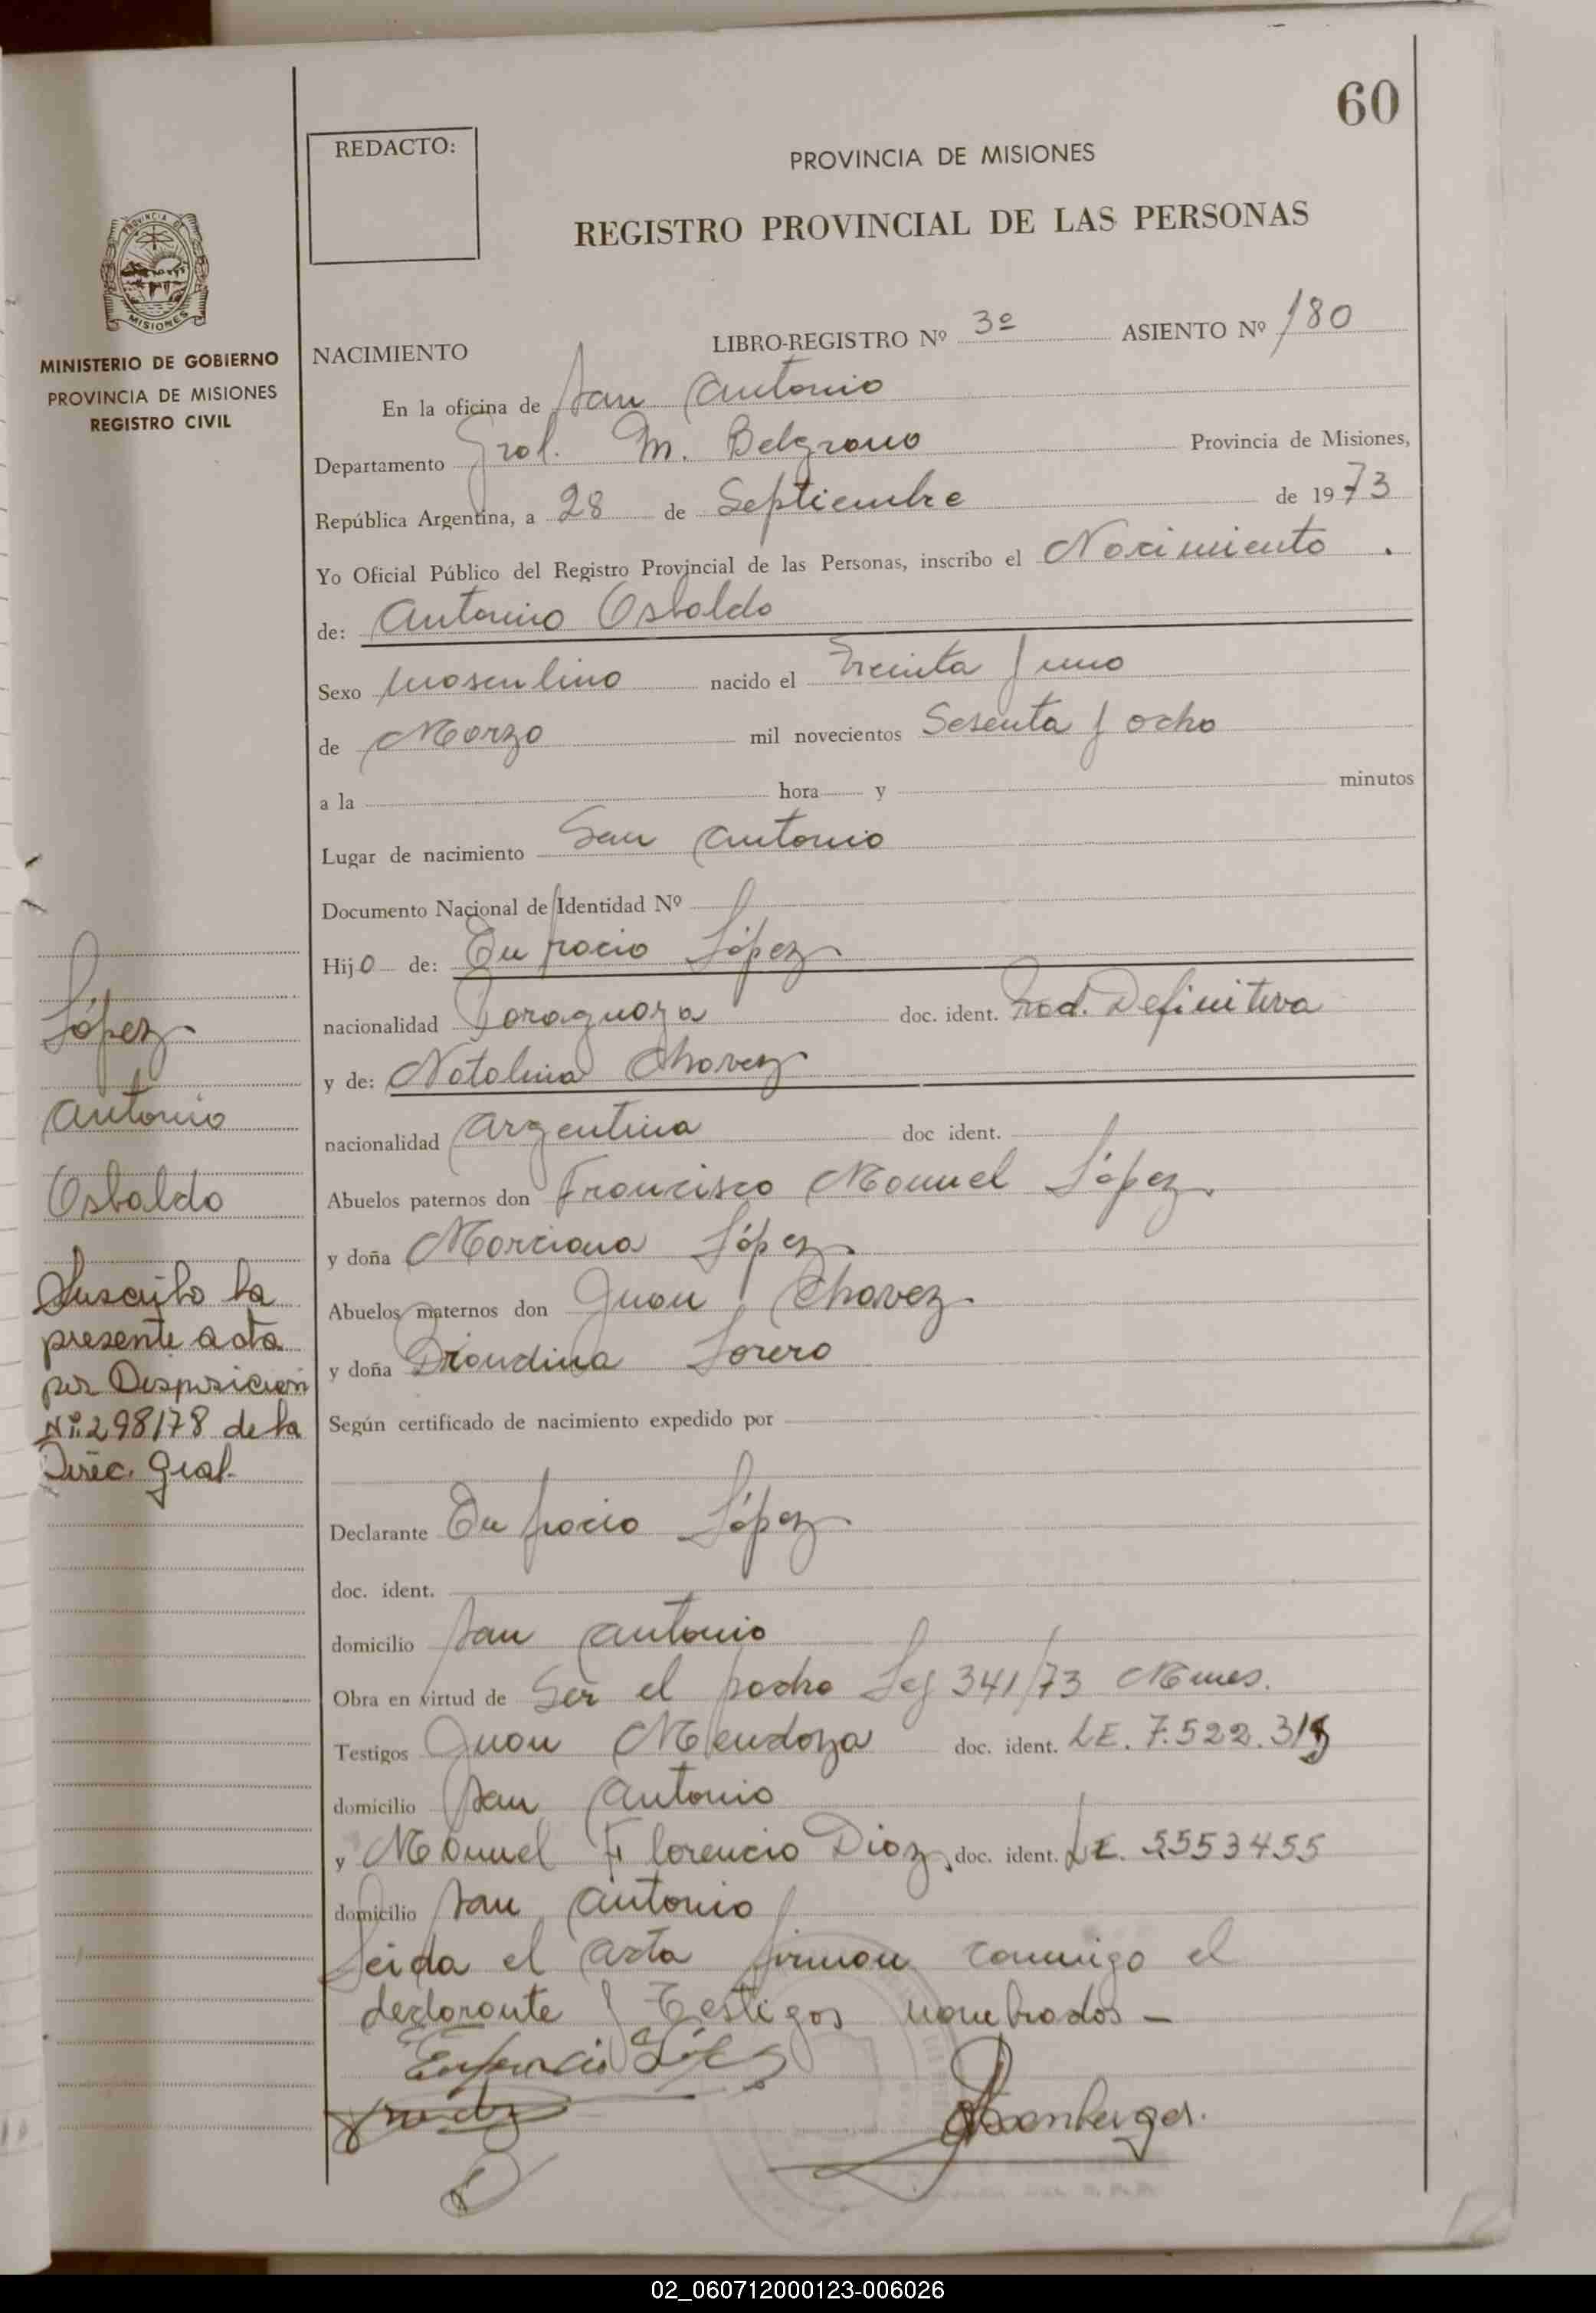 60
REDACTO:
PROVINCIA DE MISIONES
REGISTRO PROVINCIAL DE LAS PERSONAS
PROVINCIA DE
MISIONES
MINISTERIO DE GOBIERNO
PROVINCIA DE MISIONES
REGISTRO CIVIL
NACIMIENTO LIBRO-REGISTRO Nº 3º ASIENTO Nº 180
En la oficina de San Antonio
Departamento Gral. M. Belgrano Provincia de Misiones,
República Argentina, a 28 de Septiembre de 1973
Yo Oficial Público del Registro Provincial de las Personas, inscribo el Nacimiento.
de: Antonio Osbaldo
Sexo masculino nacido el Treinta y uno
de Marzo mil novecientos Sesenta y ocho
a la hora y minutos
Lugar de nacimiento San Antonio
Documento Nacional de Identidad Nº
Hijo de: Eufracio López
nacionalidad Paraguaya doc. ident. Rad. Definitiva
y de: Natalina Chavez
nacionalidad Argentina doc ident.
Abuelos paternos don Francisco Manuel López
y doña Marciana López
Abuelos maternos don Juan Chavez
y doña
Según certificado de nacimiento expedido por
Declarante Eufracio López
doc. ident.
domicilio San Antonio
Obra en virtud de Ser el padre Ley 341/73
Testigos Juan Mendoza doc. ident. LE. 7.522.319
domicilio San Antonio
y Manuel Florencio Diaz, doc. ident. LE. 5553455
domicilio San Antonio
Leida el acta firman conmigo el
declarante y Testigos nombrados -
Eufracio López
López
Antonio
Osbaldo
Suscribo la
presente acta
por Disposicion
Nº 298/78 de la
Direc. Gral.
02_060712000123-006026